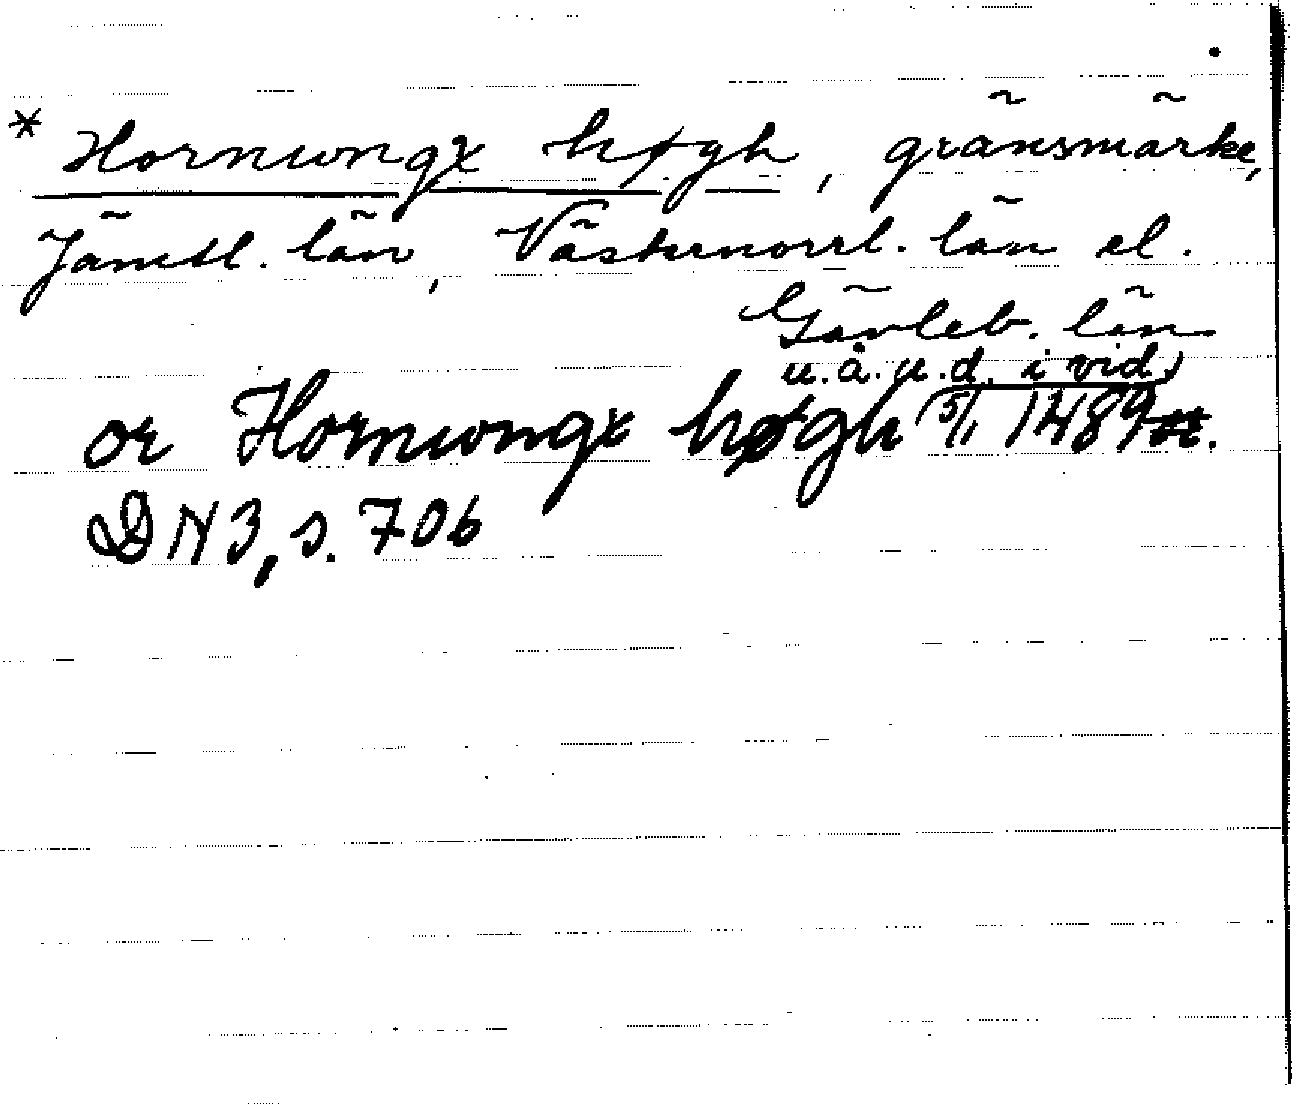 * Hornwngx høgh, gränsmärke,
Jämtl. län, Västernorrl. län el.
Gävleb. län
u.å.u.d. i vid.
or Hornwngx høgh 5/1 1489
DN 3, s. 706